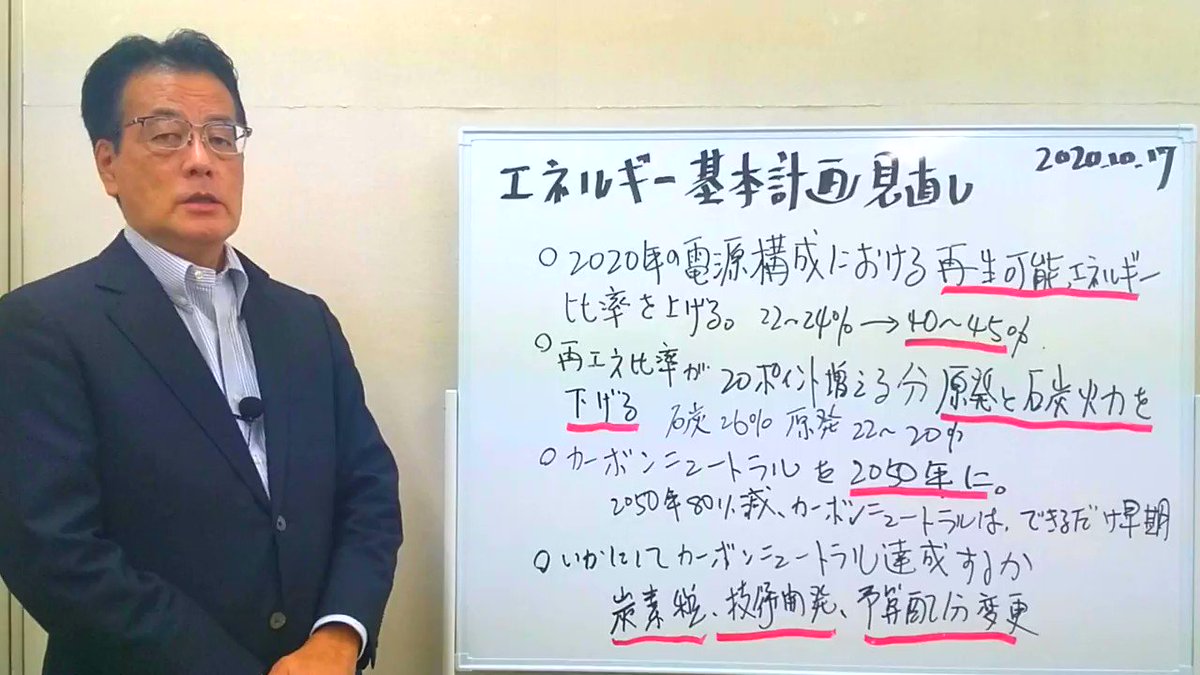 エネルギー基本計画見直し
2020.10.17
○2020年の電源構成における再生可能エネルギー
比率を上げる。22〜24%→40〜45%
○再エネ比率が20ポイント増える分原発と石炭火力を
下げる 石炭26% 原発22〜20%
○カーボンニュートラルを2050年に。
2050年80%減、カーボンニュートラルは、できるだけ早期
○いかにしてカーボンニュートラル達成するか
炭素税、技術開発、予算配分変更